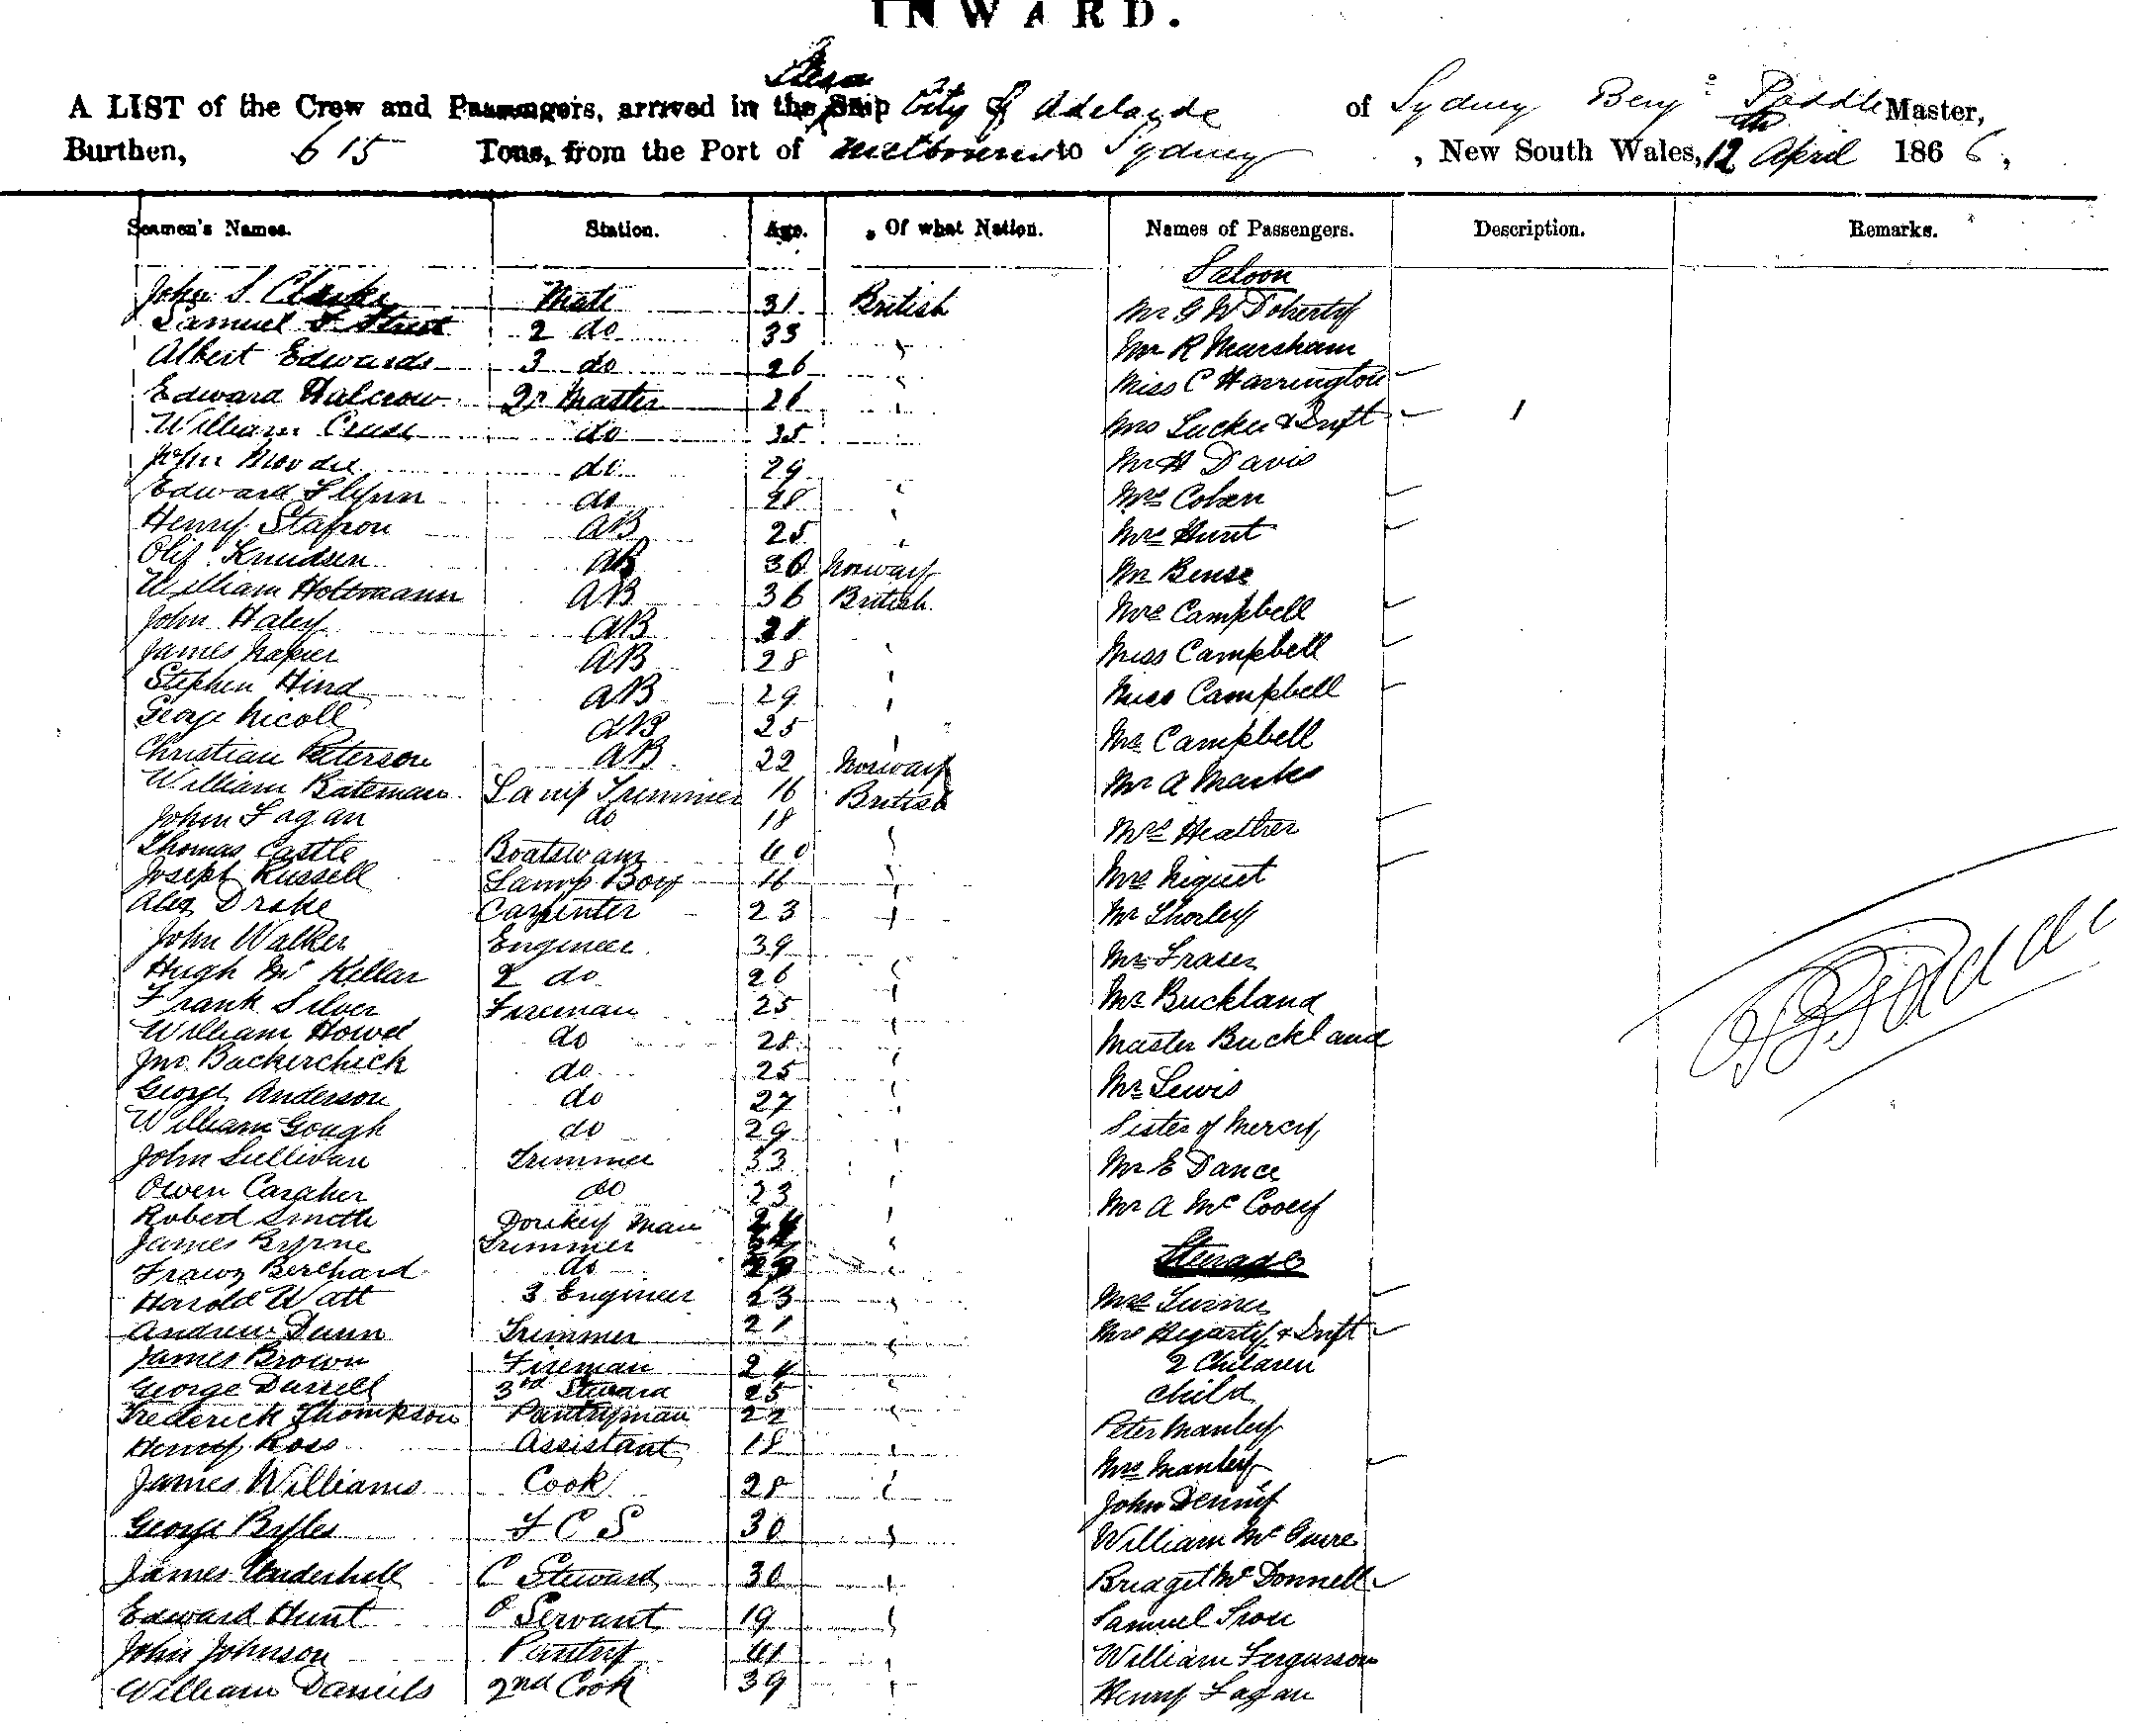 INWARD.
A LIST of the Crew and Passengers, arrived in the Ship City of Adelaide of Sydney Benj: Paddle Master,
Burthen, 615 Tons, from the Port of Melbourne to Sydney, New South Wales, 12 April 1866,
Seamen's Names. Station. Age. Of what Nation. Names of Passengers. Description. Remarks.
Saloon
John S. Clarke Mate 31 British Mr G W Doherty
Samuel 2 do 33 Mr R Marsham
Albert Edwards 3 do 26 Miss C Harrington
Edward Halcrow Qr Master 26 Mrs Tucker & Inft
William Cruse do 35 Mr H Davis
John Moodie do 29
Edward Flynn do 28 Mrs Cohen
Henry AB 25 Mrs Hunt
Olif Knudsen AB 30 Norway Mr Bense
William Holtmann AB 36 British Mrs Campbell
John Haley AB
James Napier AB 28 Miss Campbell
Stephen Hind AB 29 Miss Campbell
George Nicoll AB 25 Mr Campbell
Christian Peterson AB 22 Norway
William Bateman Lamp Trimmer 16 British Mr A Marks
John Fagan do 18 Mrs Heather
Thomas Castle Boatswain 40
Joseph Russell Lamp Boy 16 Mrs Niquet
Alex Drake Carpenter 23 Mr Shorley
John Walker Engineer 39 Mr Fraser
Hugh Mc Kellar 2 do 26
Frank Silver Fireman 25 Mr Buckland
William Howel do 28 Master Buckland
Jno. do 25 Mr Lewis
George Anderson do 27
William Gough do 29 Sister of Mercy
John Sullivan Trimmer 33 Mr E Dance
Owen Caraher do 23 Mr A Mc Cooey
Robert Smith Donkey Man 24
James Byrne Trimmer
Franz Berchard do Steerage
Harold Watt 3 Engineer 23 Mrs Turner
Andrew Dunn Trimmer 21 Mrs Hegarty & Inft
James Brown Fireman 24 2 Children
George Durrell 3rd Steward 25 Child
Frederick Thompson Pantryman 22 Peter Manley
Henry Ross Assistant 18 Mrs Manley
James Williams Cook 28 John Denny
George Byles F C S 30 William Mc Guire
James Underhill C Steward 30 Bridget Mc Donnell
Edward Hunt Servant 19 Samuel
John Johnson Pantry 41 William Fergusson
William Daniels 2nd Cook 39 Henry Fagan